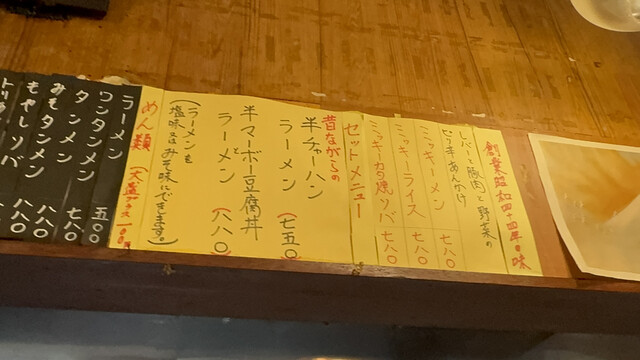 創業昭和四十四年の味
レバーと豚肉と野菜の
ピリ辛あんかけ
ミッキーメン 七八〇
ミッキーライス 七八〇
ミッキーカタ焼ソバ 七八〇
セットメニュー
昔ながらの
半チャーハン
ラーメン (七五〇)
半マーボー豆腐丼
と
ラーメン (八八〇)
(ラーメンを
塩味又はみそ味にできます。)
めん類 (大盛プラス一〇〇円)
ラーメン 五五〇
ワンタンメン
タンメン 七八〇
みそタンメン 八八〇
もやしソバ